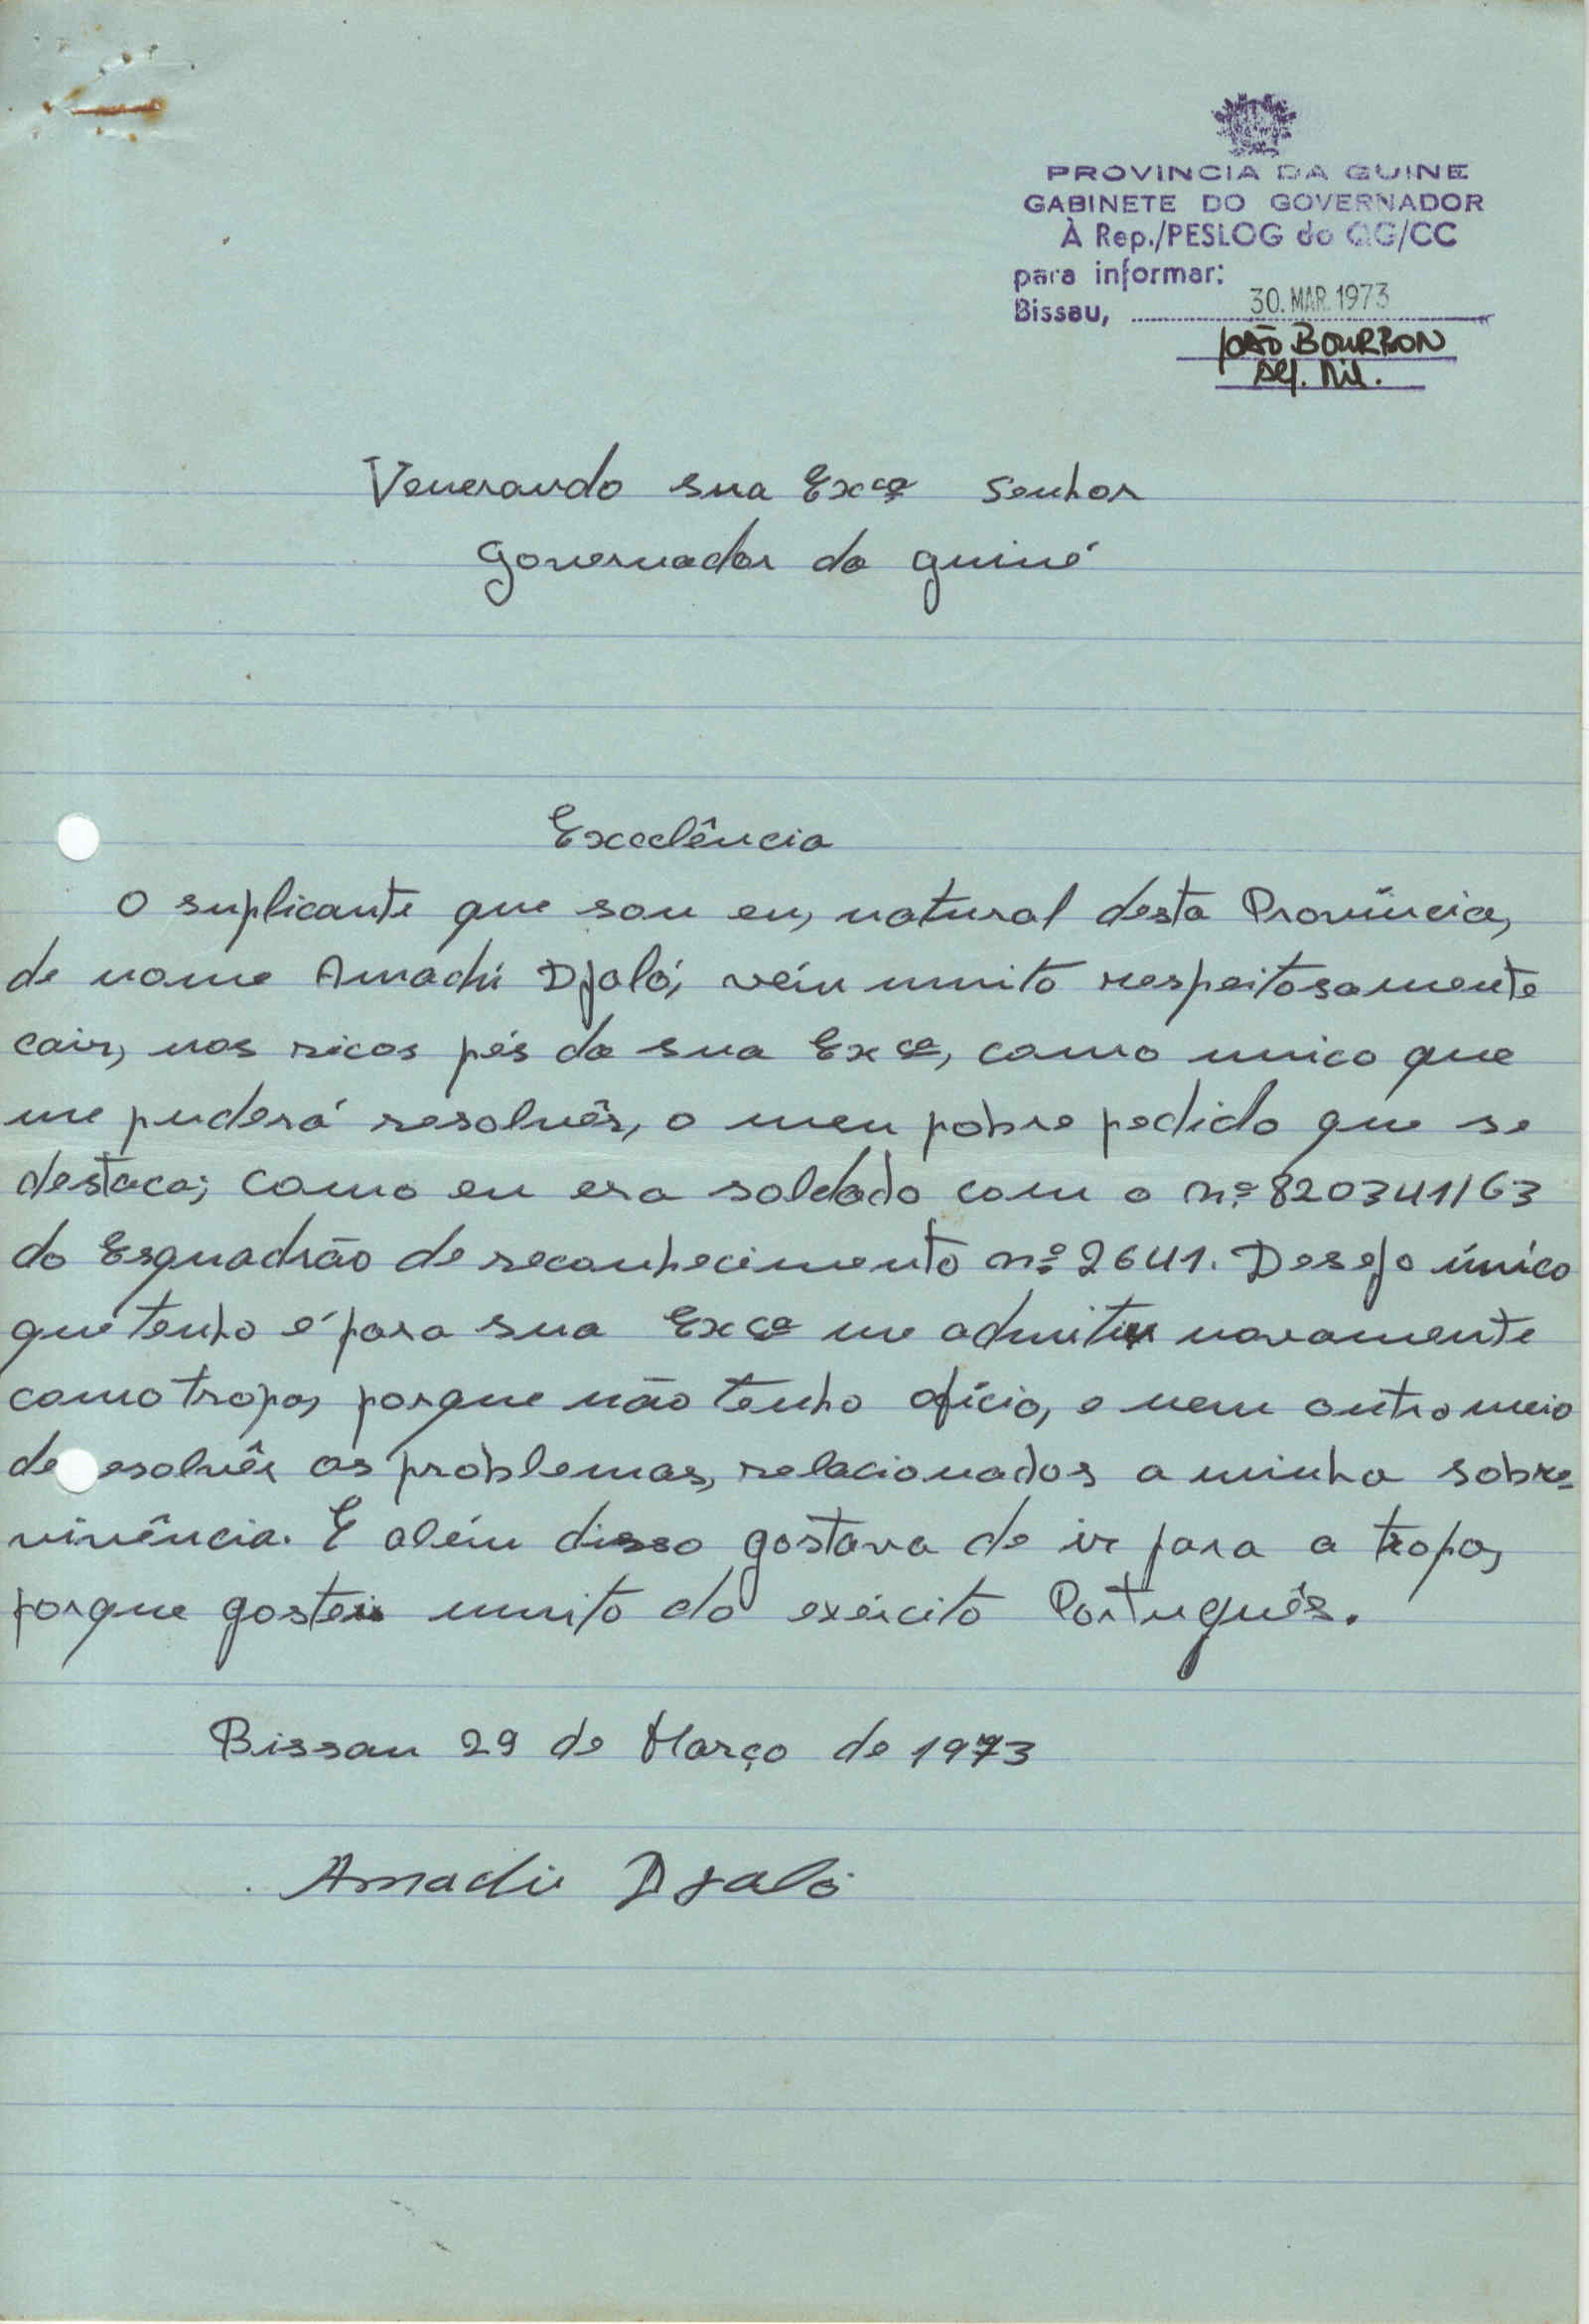 PROVINCIA DA GUINE
GABINETE DO GOVERNADOR
À Rep./PESLOG do QG/CC
para informar:
Bissau, 30. MAR. 1973
JOÃO BOURBON
Alf. Mil.
Venerando sua Excça Senhor
Governador da guiné
Excelência
O suplicante que sou eu, natural desta Província,
de nome Amadú Djaló, vém muito respeitosamente
cair, nos ricos pés da sua Exça, como unico que
me puderá resolvêr, o meu pobre pedido que se
destaca; como eu era soldado com o nº 820341/63
do Esquadrão de reconhecimento nº 2641. Desejo único
que tenho é para sua Exça me admitir novamente
como tropa, porque não tenho ofício, e nem outro meio
de esolvêr os problemas, relacionados a minha sobre-
vivência. E além disso gostava de ir para a tropa,
porque gostei muito do exército Português.
Bissau 29 de Março de 1973
Amadú Djaló